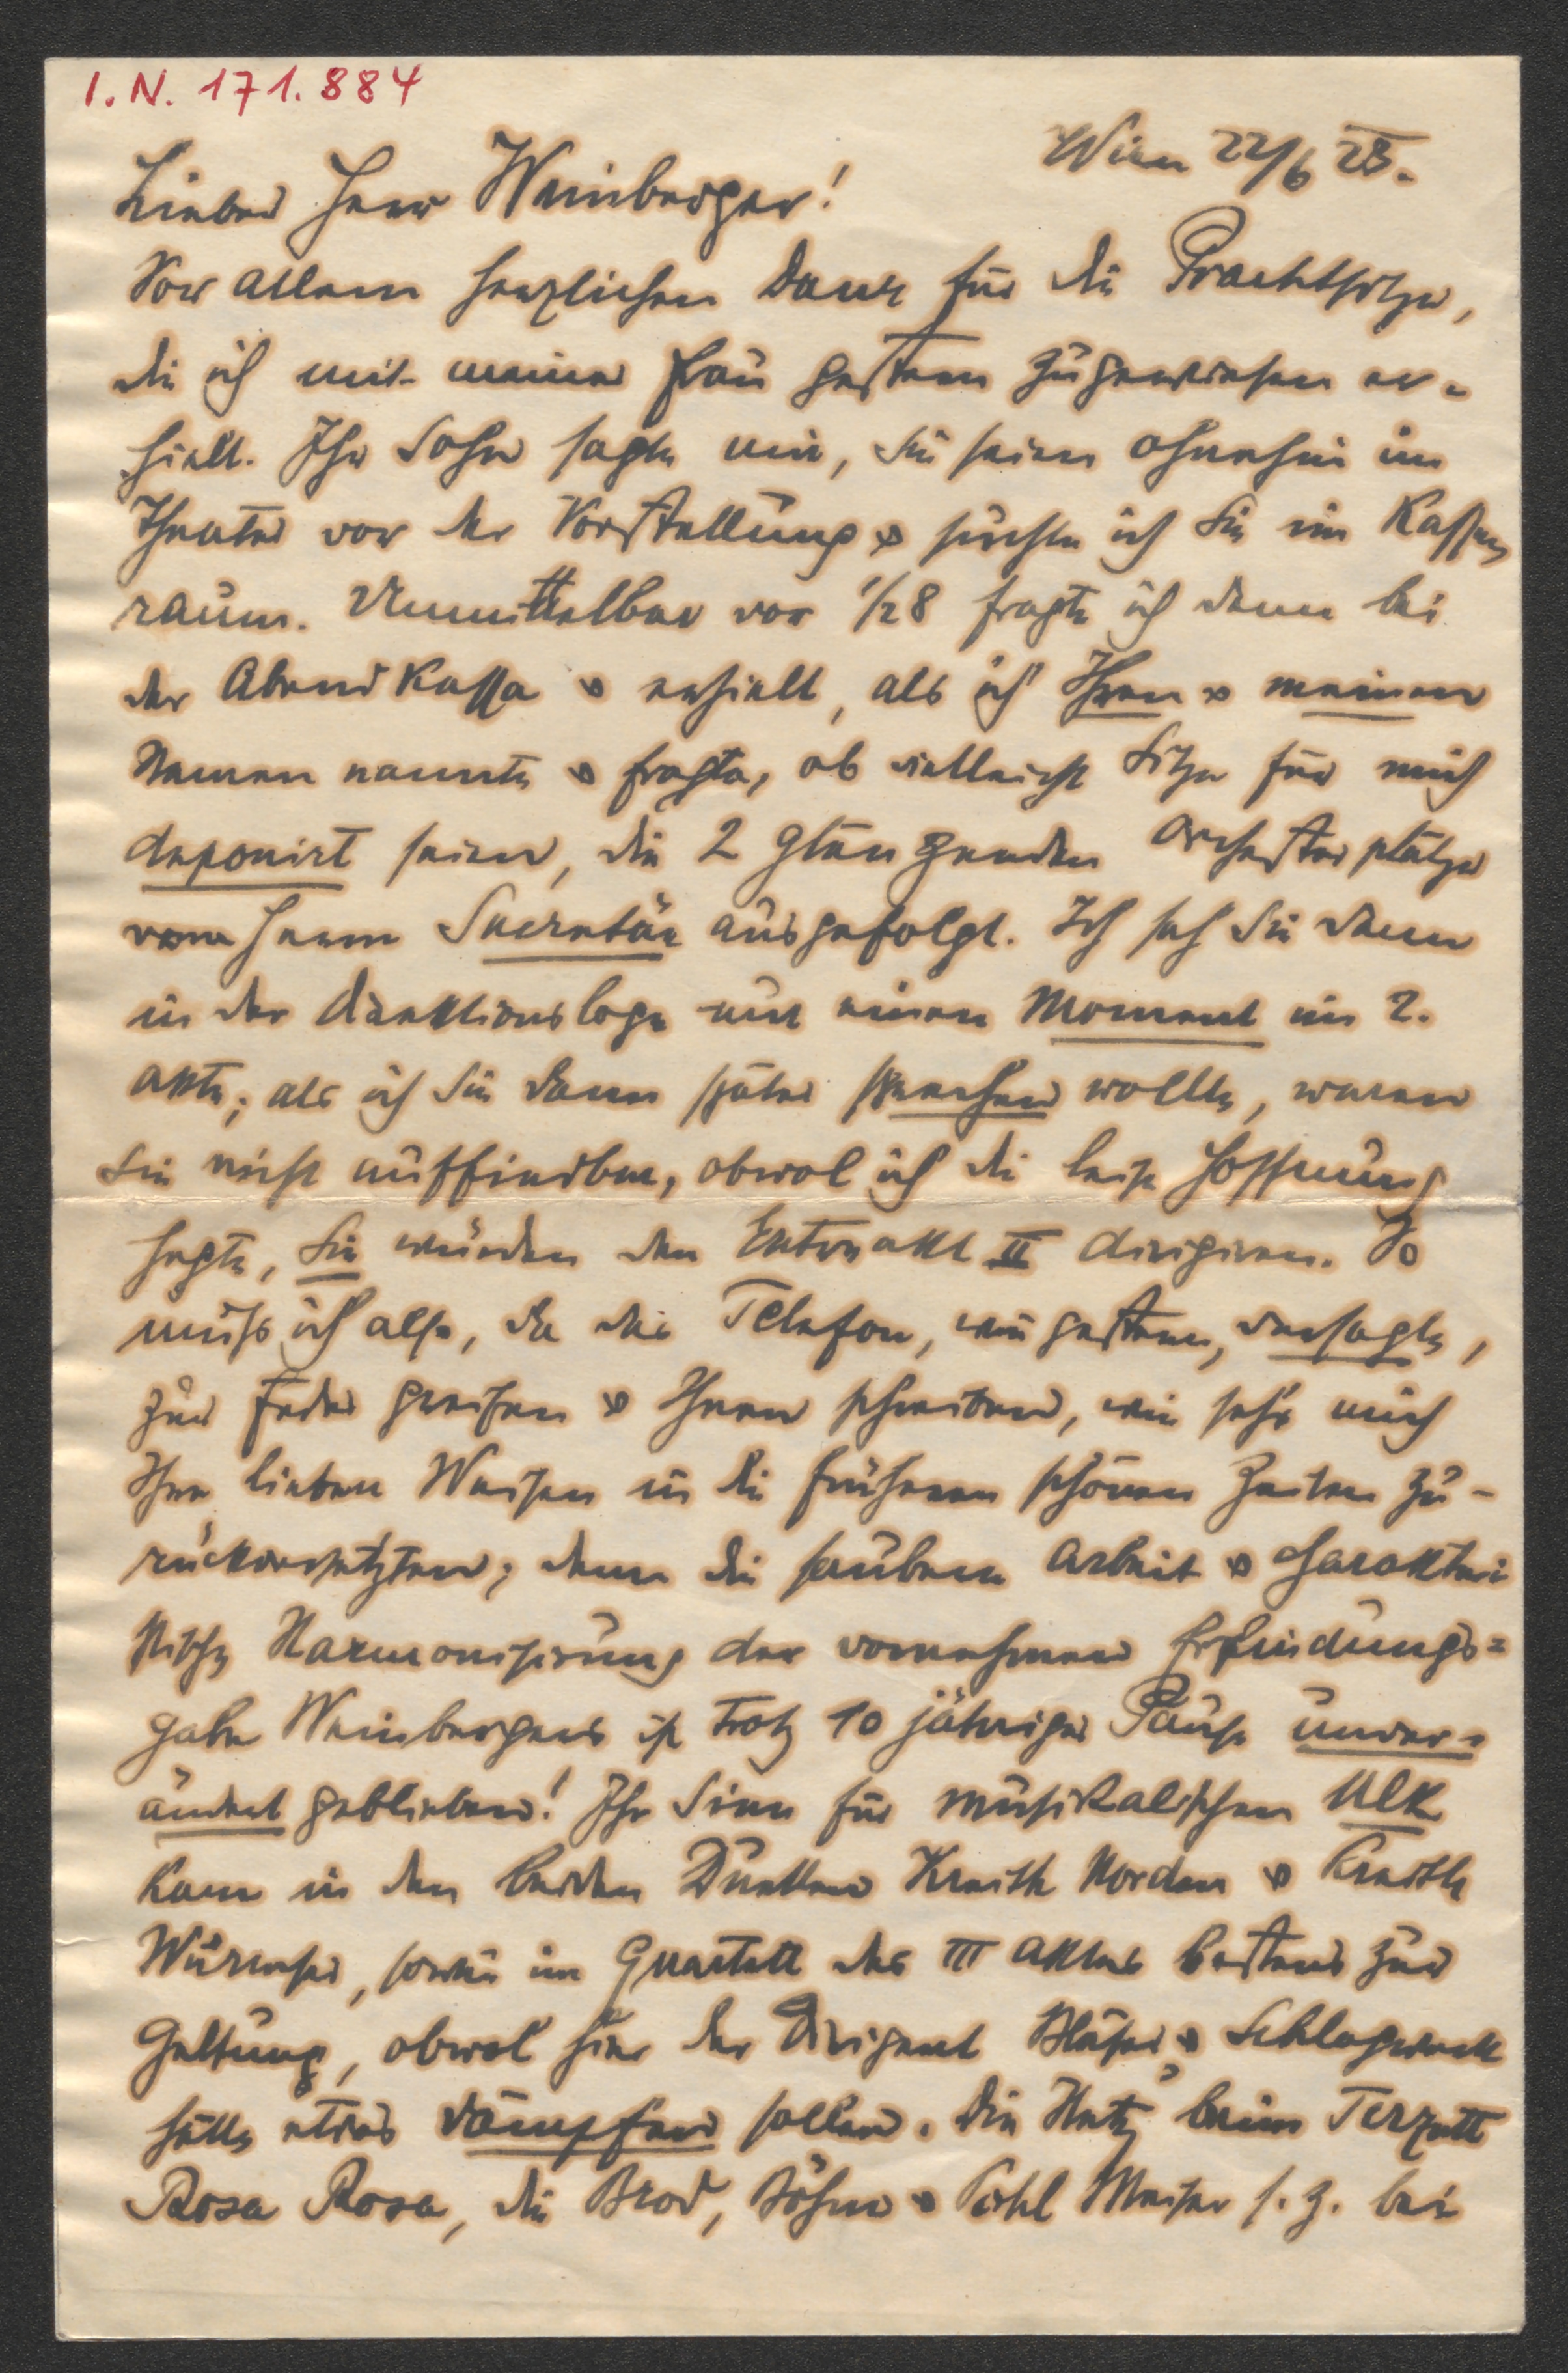 I. N. 171.884
Wien 22/6 28.
Lieber Herr Weinberger!
Vor allem herzlichen Dank für die Prachtsitze,
die ich mit meiner Frau gestern zugewiesen er-
hielt. Ihr Sohn sagte mir, Sie seien ohnehin im
Theater vor der Vorstellung & suchte ich Sie im Kassen
raum. Unmittelbar vor 1/28 fragte ich dann bei
der Abendkassa & erhielt, als ich Ihren & meinen
Namen nannte & fragte, ob vielleicht Sitze für mich
deponirt seien, die 2 glänzenden Orchesterplätze
vom Herrn Secretär ausgefolgt. Ich sah Sie dann
in der Direktionsloge nur einen Moment im 2.
Akte; als ich Sie dann später sprechen wollte, waren
Sie nicht auffindbar, obwol ich die leise Hoffnung
hegte, Sie würden den Entreakt II dirigiren. So
muß ich also, da das Telefon, wie gestern, versagte,
zur Feder greifen & Ihnen schreiben, wie sehr mich
Ihre lieben Weisen in die früheren schönen Zeiten zu-
rückversetzten; denn die saubere Arbeit & charakteri
stische Harmonisirung der vornehmen Erfindungs=
gabe Weinbergers ist trotz 10 jähriger Pause unver=
ändert geblieben! Ihr Sinn für musikalischen Ulk
kam in den beiden Duetten Kreith Norden &
sowie im Quartett des III Aktes bestens zur
Geltung, obwol hier der Dirigent Bläser & Schlagwerk
hätte etwas dämpfen sollen. Die Hetz beim Terzett
Rosa Rosa, die Brod, Böhm & Pohl Meiser s. z. bei